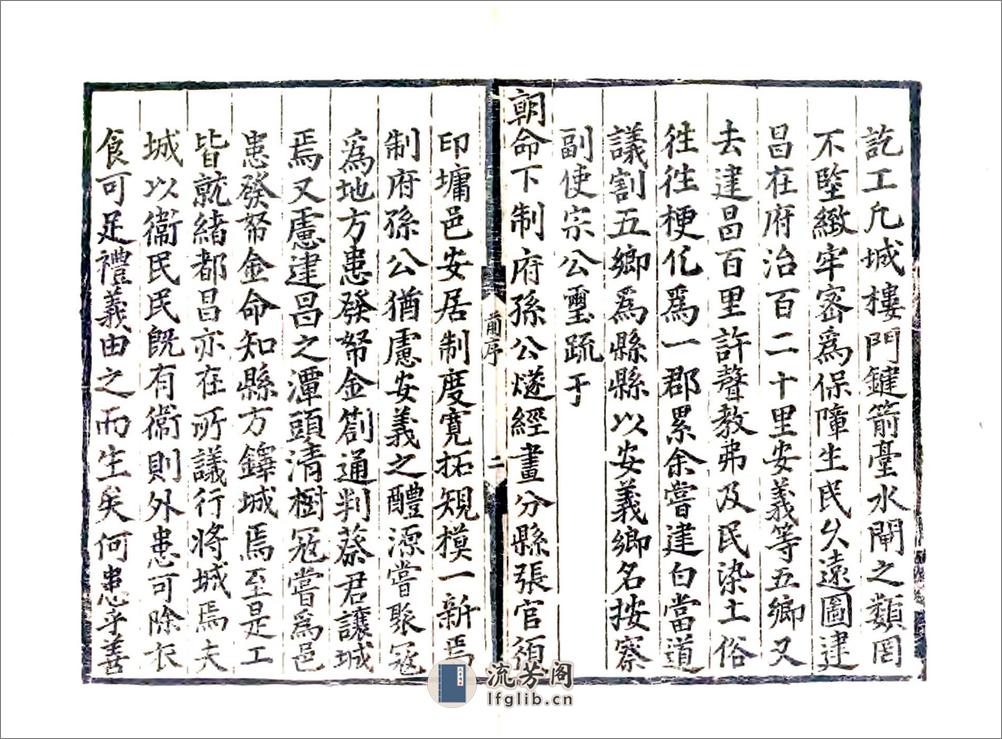 訖工凡城樓門鍵箭臺水閘之類罔
不堅緻牢宻為保障生民久遠圖建
昌在府治百二十里安義等五鄉又
去建昌百里許聲教弗及民染土俗
徃徃梗化為一郡累余嘗建白當道
議割五鄉為縣縣以安義鄉名按察
副使宗公璽疏于
朝命下制府孫公燧經畫分縣張官頒
印墉邑安居制度寛拓規模一新焉
制府孫公猶慮安義之醴源嘗聚冦
為地方患發帑金剏通判蔡君讓城
焉又慮建昌之潭頭清樹冦嘗為邑
患發帑金命知縣方鐸城焉至是工
皆就緒都昌亦在所議行將城焉夫
城以衞民民旣有衞則外患可除衣
食可足禮義由之而生矣何患乎善
前序
二
流芳阁
lfglib.cn